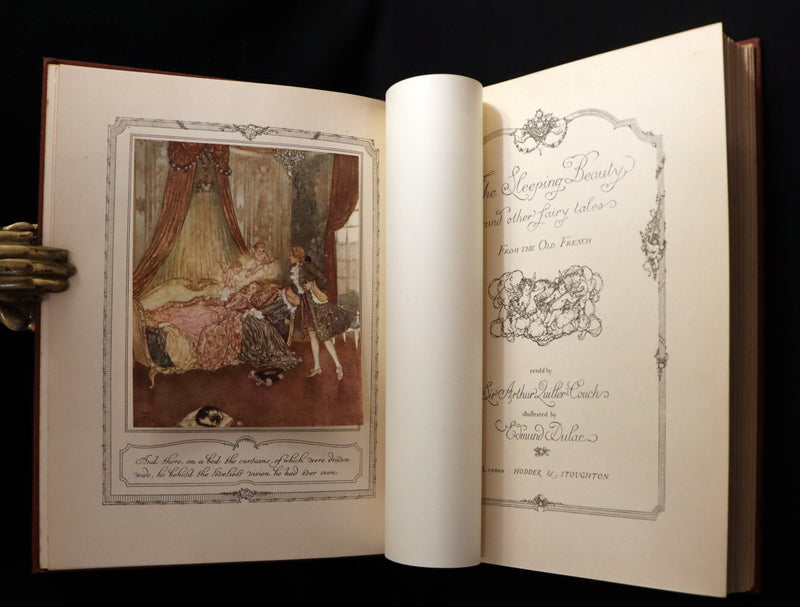 And there, on a bed the curtains of which were drawn
wide, he beheld the loveliest vision he had ever seen.
The Sleeping Beauty
and other fairy tales
FROM THE OLD FRENCH
retold by
Sir Arthur Quiller-Couch
illustrated by
Edmund Dulac
LONDON : HODDER & STOUGHTON